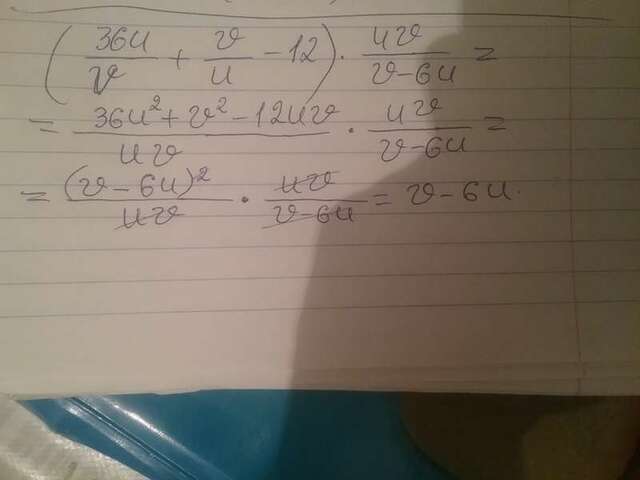 (36u/v + v/u - 12) · uv/(v-6u) =
= (36u² + v² - 12uv)/(uv) · uv/(v-6u) =
= (v-6u)²/(uv) · uv/(v-6u) = v-6u.